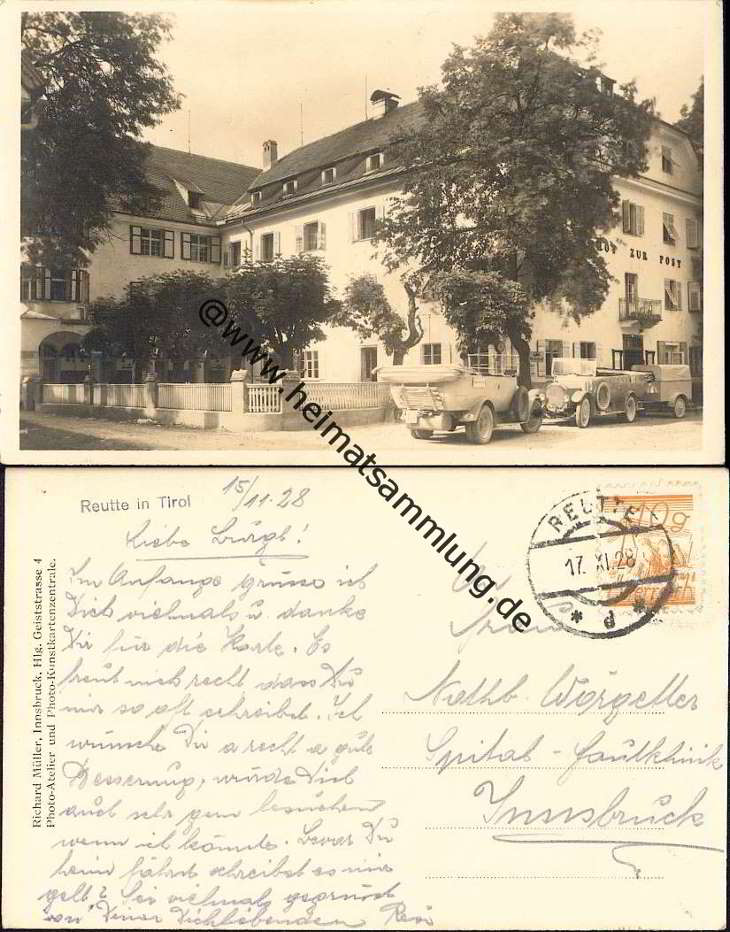 ZUR POST
@www.heimatsammlung.de
Reutte in Tirol
15/11.28
Liebe Burgl!
Im Anfange grüsse ich
Dich vielmals u. danke
Dir für die Karte. Es
freut mich recht dass Du
mir so oft schreibst. Ich
wünsche Dir a recht a gute
Besserung, würde Dich
auch sehr gern besuchen
wenn ich könnte. Bevor Du
heim fährst schreibst es mir
gelt? Sei vielmals gegrüsst
von Deiner Dichliebenden Resi
Richard Müller, Innsbruck, Hlg. Geiststrasse 4
Photo-Atelier und Photo-Kunstkartenzentrale.
REUTTE
17. XI. 28
* d *
10g
Österreich
Nothb. Wörgetter
Spital - Faulklinik
Innsbruck